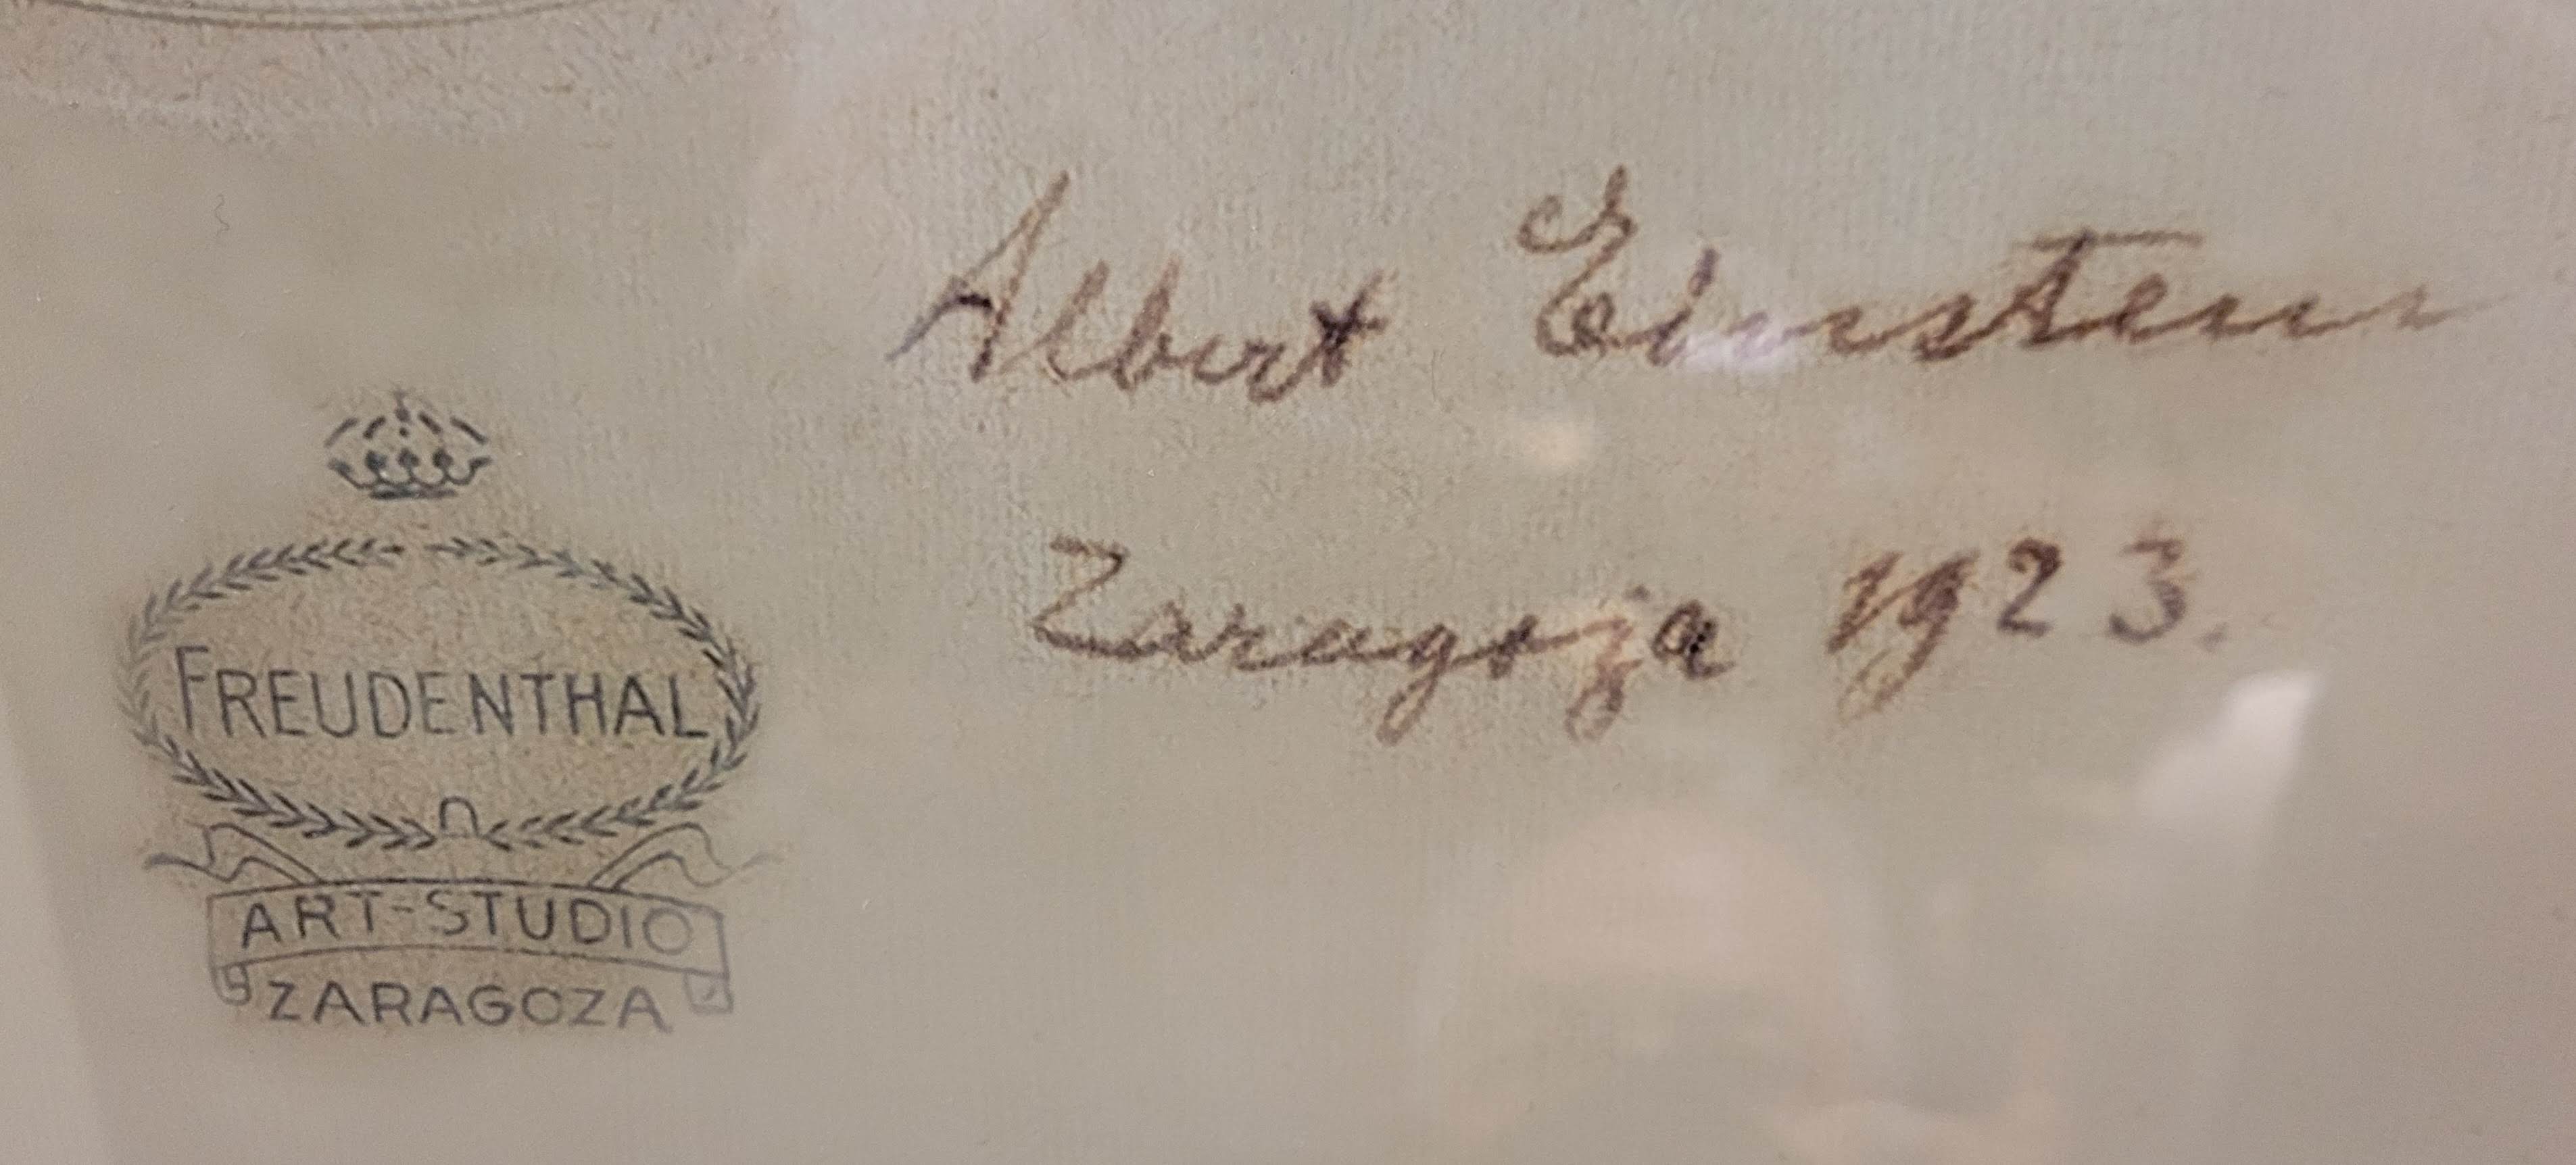 Albert Einstein
Zaragoza 1923.
FREUDENTHAL
ART-STUDIO
ZARAGOZA